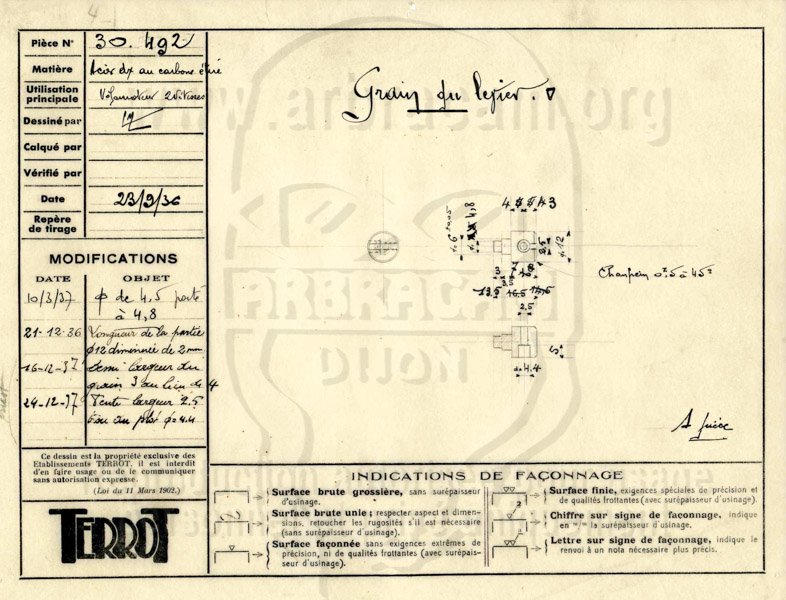 Pièce N° 30.492
Matière Acier dx au carbone étiré
Utilisation
principale Vélomoteur 2 Vitesses
Dessiné par
Calqué par
Vérifié par
Date 23/9/36
Repère
de tirage
Grain du levier.
MODIFICATIONS
DATE OBJET
10/3/37 ϕ de 4,5 porté
à 4,8
21-12-36 Longueur de la partie
ϕ12 diminuée de 2 mm
16-12-37 demi largeur du
grain 3 au lieu de 4
24-12-37 Fente largeur 2.5
ϕ=4.4
Chanfrein 0,5 à 45°
4,8
4.12
2,5
16,5
2,5
4.4
5
Ce dessin est la propriété exclusive des
Etablissements TERROT, il est interdit
d'en faire usage ou de le communiquer
sans autorisation expresse.
(Loi du 11 Mars 1902.)
TERROT
INDICATIONS DE FAÇONNAGE
Surface brute grossière, sans surépaisseur
d'usinage.
Surface brute unie; respecter aspect et dimen-
sions, retoucher les rugosités s'il est nécessaire
(sans surépaisseur d'usinage).
Surface façonnée sans exigences extrêmes de
précision, ni de qualités frottantes (avec surépais-
seur d'usinage).
Surface finie, exigences spéciales de précision et
de qualités frottantes (avec surépaisseur d'usinage).
Chiffre sur signe de façonnage, indique
en m/m la surépaisseur d'usinage.
Lettre sur signe de façonnage, indique le
renvoi à un nota nécessaire plus précis.
www.arbracam.org
ARBRACAM
DIJON